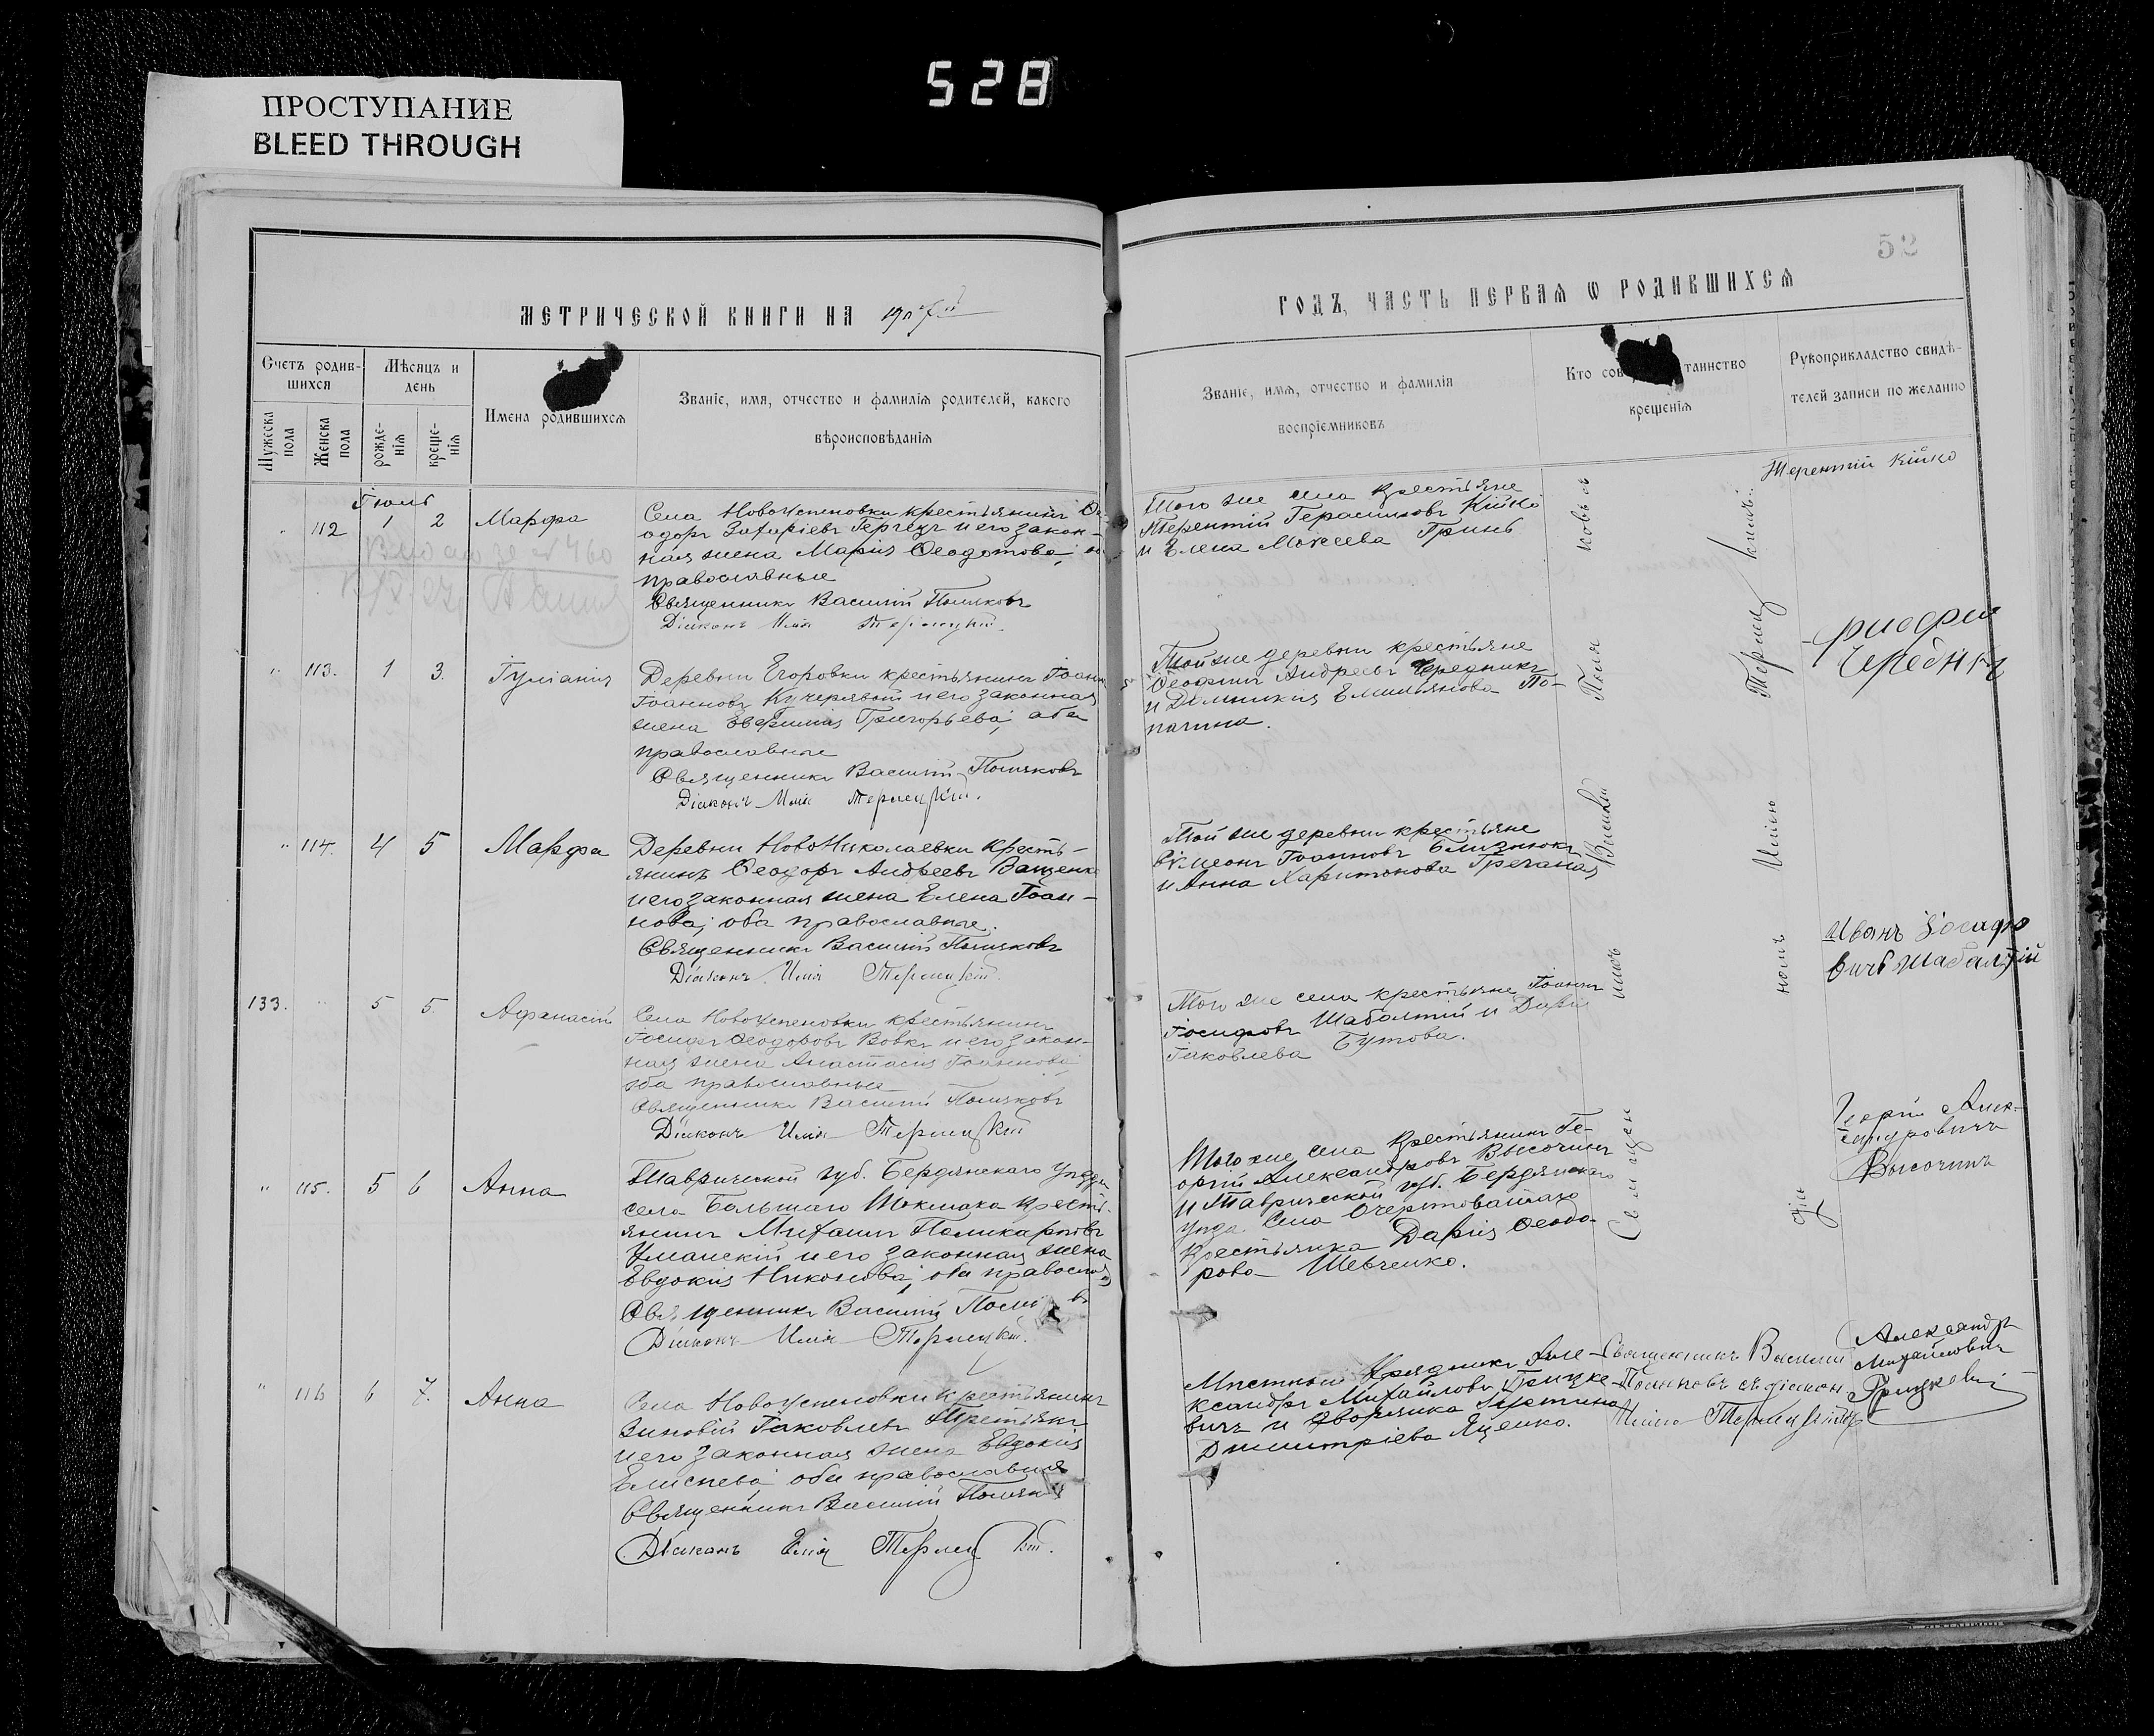 528
ПРОСТУПАНИЕ
BLEED THROUGH
52
МЕТРИЧЕСКОЙ КНИГИ НА 1907й
ГОДЪ, ЧАСТЬ ПЕРВАЯ Ѡ РОДИВШИХСЯ
Счетъ родив-
шихся
Мѣсяцъ и
день
Мужеска
пола
Женска
пола
рожде-
нія
креще-
нія
Имена родившихся
Званіе, имя, отчество и фамилія родителей, какого
вѣроисповѣданія
Званіе, имя, отчество и фамилія
воспріемниковъ
Кто сов таинство
крещенія
Рукоприкладство свидѣ-
телей записи по желанію
Іюль
112 1 2 Марфа
Села Новоуспеновки крестьянинъ Ѳе-
одоръ Захаріевъ Гергецъ и его закон-
ная жена Марія Ѳеодотова,
православные
Священникъ Василій Поляковъ
Діаконъ Илія Терлецкій.
Того же села крестьяне
Терентій Герасимовъ Кійко
и Елена Мокеева Гринь
Терентій Кійко
" 113. 1 3. Іуліанія
Деревни Егоровки крестьянинъ Іоаннъ
Іоанновъ Кучерявый и его законная
жена Евфимія Григорьева, оба
православные
Священникъ Василій Поляковъ
Діаконъ Илія Терлецкій.
Той же деревни крестьяне
Ѳеофилъ Андреевъ Чередникъ
и Домникія Емиліянова По-
пагина.
Чередникъ
" 114. 4 5 Марфа
Деревни Новониколаевки кресть-
янинъ Ѳеодоръ Андреевъ Ващенко
и его законная жена Елена Іоан-
нова, оба православные.
Священникъ Василій Поляковъ
Діаконъ Илія Терлецкій.
Той же деревни крестьяне
Сѵмеонъ Іоанновъ Близнюкъ
и Анна Харитонова Гречаная
133. " 5 5. Афанасій
Села Новоуспеновки крестьянинъ
Іосифъ Ѳеодоровъ Вовкъ и его закон-
ная жена Анастасія Іоаннова
оба православные
Священникъ Василій Поляковъ
Діаконъ Илія Терлецкій
Того же села крестьяне Іоаннъ
Іосифовъ Шабалтій и Дарія
Іаковлева Бутова.
Иванъ Іосифо
вичъ Шабалтій
" 115. 5 6 Анна
Таврической губ. Бердянскаго уѣзда
села Большаго Токмака кресть-
янинъ Михаилъ Поликарповъ
Уманскій и его законная жена
Евдокія Никонова, оба православ
Священникъ Василій Поля въ
Діаконъ Илія Терлецкій.
Того же села крестьянинъ Ге-
оргій Александровъ Высочинъ
и Таврической губ. Бердянскаго
уѣзда села Очеретоватаго
крестьянка Дарія Ѳеодо-
рова Шевченко.
Георгій Алек-
сандровичъ
Высочинъ
" 116 6 7. Анна
Села Новоуспеновки крестьянинъ
Зиновій Іаковлевъ Третьякъ
и его законная жена Евдокія
Елисѣева, оба православные
Священникъ Василій Поляк
Діаконъ Илія Терлецкій.
Мѣстный Урядникъ Але-
ксандръ Михайловъ Грицке-
вичъ и дворянка
Димитріева Яценко.
Священникъ Василій
Поляковъ съ діакон
Иліею Терлецкимъ
Александръ
Михайловичъ
Грицкевич
Священ
никъ
Василій
Поля
ковъ съ
діа
кономъ
Иліею
Терлец
кимъ.